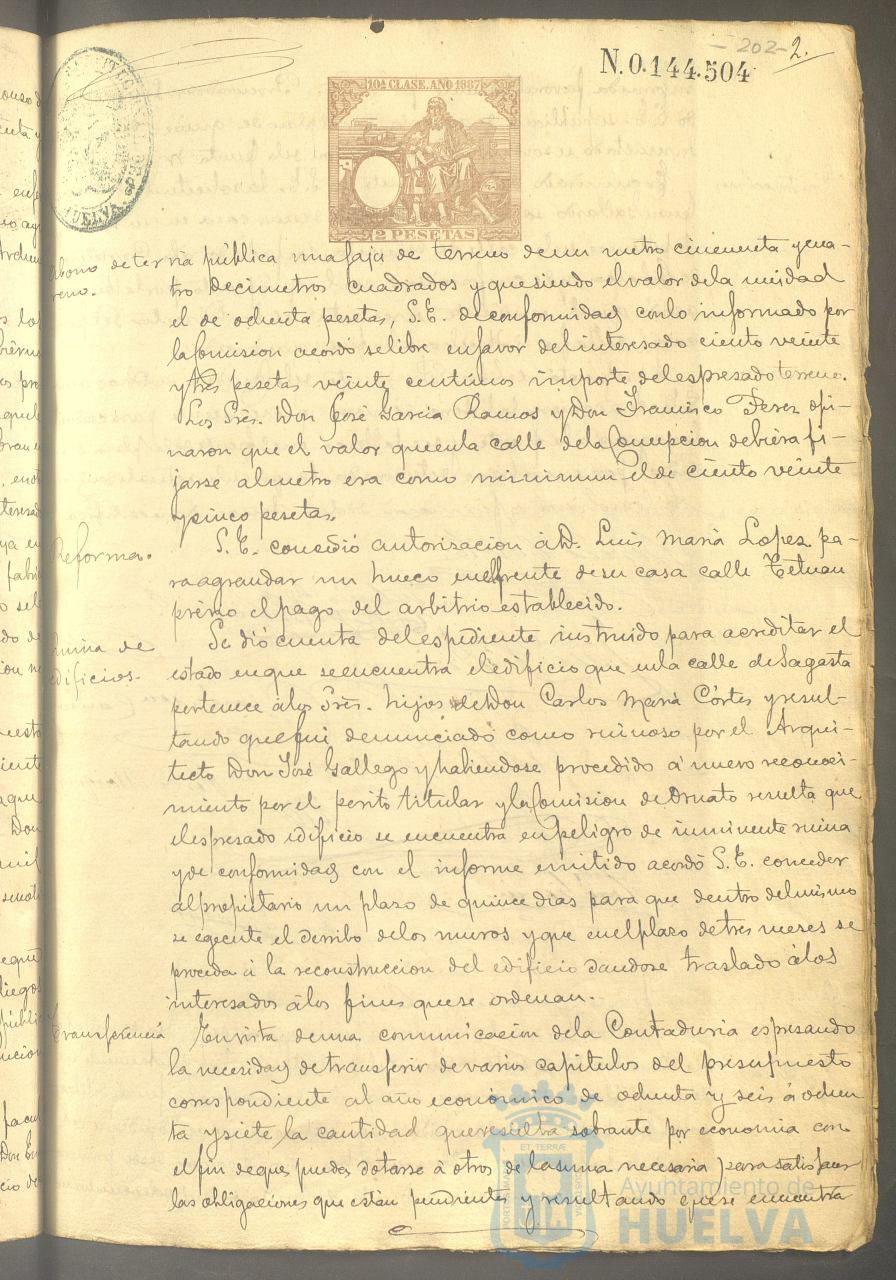 - 202 - 2.
N.0.144.504
10ª CLASE. AÑO 1887
2 PESETAS
HUELVA
Abono de ter
reno.
via pública una faja de terreno de un metro cincuenta y cua-
tro decimetros cuadrados y que siendo el valor de la unidad
el de ochenta pesetas, S.E. de conformidad con lo informado por
la Comision acordó se libre en favor del interesado ciento veinte
y tres pesetas veinte centimos importe del espresado terreno.
Los Srẽs. Don José Garcia Ramos y Don Francisco Perez opi-
naron que el valor que en la calle de la Concepcion debiera fi-
jarse al metro era como minimum el de ciento veinte
y cinco pesetas.
Reforma.
S.E. concedió autorizacion á D. Luis Maria Lopez pa-
ra agrandar un hueco en el frente de su casa calle Tetuan
prévio el pago del arbitrio establecido.
Ruina de
edificios.
Se dió cuenta del espediente instruido para acreditar el
estado en que se encuentra el edificio que en la calle de Sagasta
pertenece á los Srẽs. hijos de Don Carlos Maria Córtes y resul-
tando que fué denunciado como ruinoso por el Arqui-
tecto Don José Gallego y habiendose procedido á nuevo reconoci-
miento por el perito titular y la Comision de Ornato resulta que
el espresado edificio se encuentra en peligro de inminente ruina
y de conformidad con el informe emitido acordó S.E. conceder
al propietario un plazo de quince dias para que dentro del mismo
se egecute el derribo de los muros y que en el plazo de tres meses se
proceda á la reconstruccion del edificio dandose traslado á los
interesados á los fines que se ordenan.
Transferencia
En vista de una comunicacion de la Contaduria espresando
la necesidad de transferir de varios capitulos del presupuesto
correspondiente al año económico de ochenta y seis á ochen
ta y siete la cantidad que resulta sobrante por economia con
el fin de que pueda dotarse á otros de la suma necesaria para satisfacer
las obligaciones que están pendientes y resultando que se encuentra
Ayuntamiento de
HUELVA